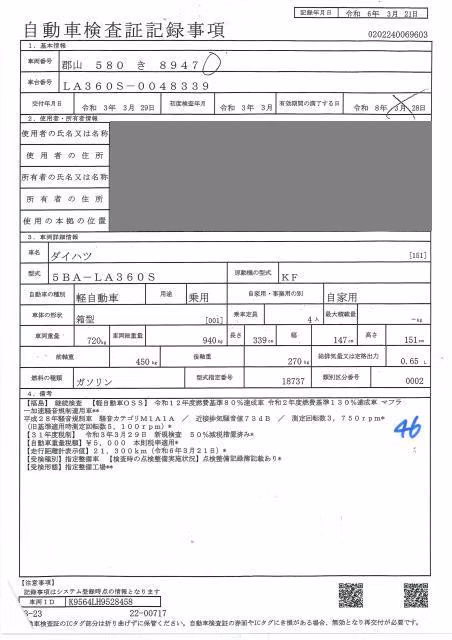 記録年月日 令和 6年 3月 21日
自動車検査証記録事項
0202240069603
1. 基本情報
車両番号 郡山 580 き 8947
車台番号 LA360S-0048339
交付年月日 令和 3年 3月 29日 初度検査年月 令和 3年 3月 有効期間の満了する日 令和 8年 3月 28日
2. 使用者・所有者情報
使用者の氏名又は名称
使用者の住所
所有者の氏名又は名称
所有者の住所
使用の本拠の位置
3. 車両詳細情報
車名 ダイハツ [151]
型式 5BA-LA360S 原動機の型式 KF
自動車の種別 軽自動車 用途 乗用 自家用・事業用の別 自家用
車体の形状 箱型 [001] 乗車定員 4人 最大積載量 -kg
車両重量 720kg 車両総重量 940kg 長さ 339cm 幅 147cm 高さ 151cm
前軸重 450kg 後軸重 270kg 総排気量又は定格出力 0.65 L
燃料の種類 ガソリン 型式指定番号 18737 類別区分番号 0002
4. 備考
【福島】 継続検査 【軽自動車OSS】 令和12年度燃費基準80%達成車 令和2年度燃費基準130%達成車 マフラ
ー加速騒音規制適用車**
平成28年騒音規制車 騒音カテゴリM1A1A / 近接排気騒音値73dB / 測定回転数3,750rpm*
(旧基準適用時測定回転数5,100rpm)*
【31年度税制】 令和3年3月29日 新規検査 50%減税措置済み*
【自動車重量税額】 ¥5,000 本則税率適用*
【走行距離計表示値】 21,300km (令和6年3月21日)*
【受検種別】 指定整備車 【検査時の点検整備実施状況】 点検整備記録簿記載あり*
【受検形態】 指定整備工場**
46
【注意事項】
記録事項はシステム登録時点の情報となります
車両ID K9564LH9528458
3-23 22-00717
動車検査証のICタグ部分は折り曲げずに保管ください。自動車検査証の券面やICタグにき損がある場合、無効となり再交付が必要です。